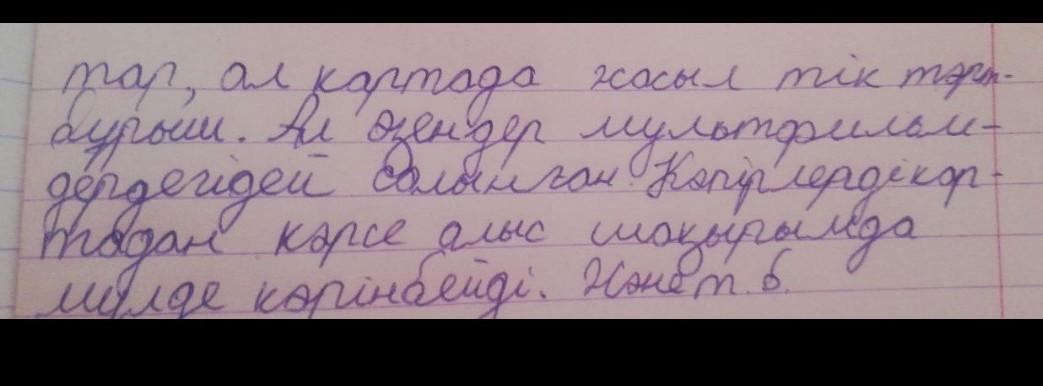 тар, ал картада жасыл тік төрт-
бұрыш. Ал өзендер мультфильм-
дердегідей салынған. Көпірлерді кар-
тадан көрсе алыс шақырымда
мүлде көрінбейді. Және т. б.